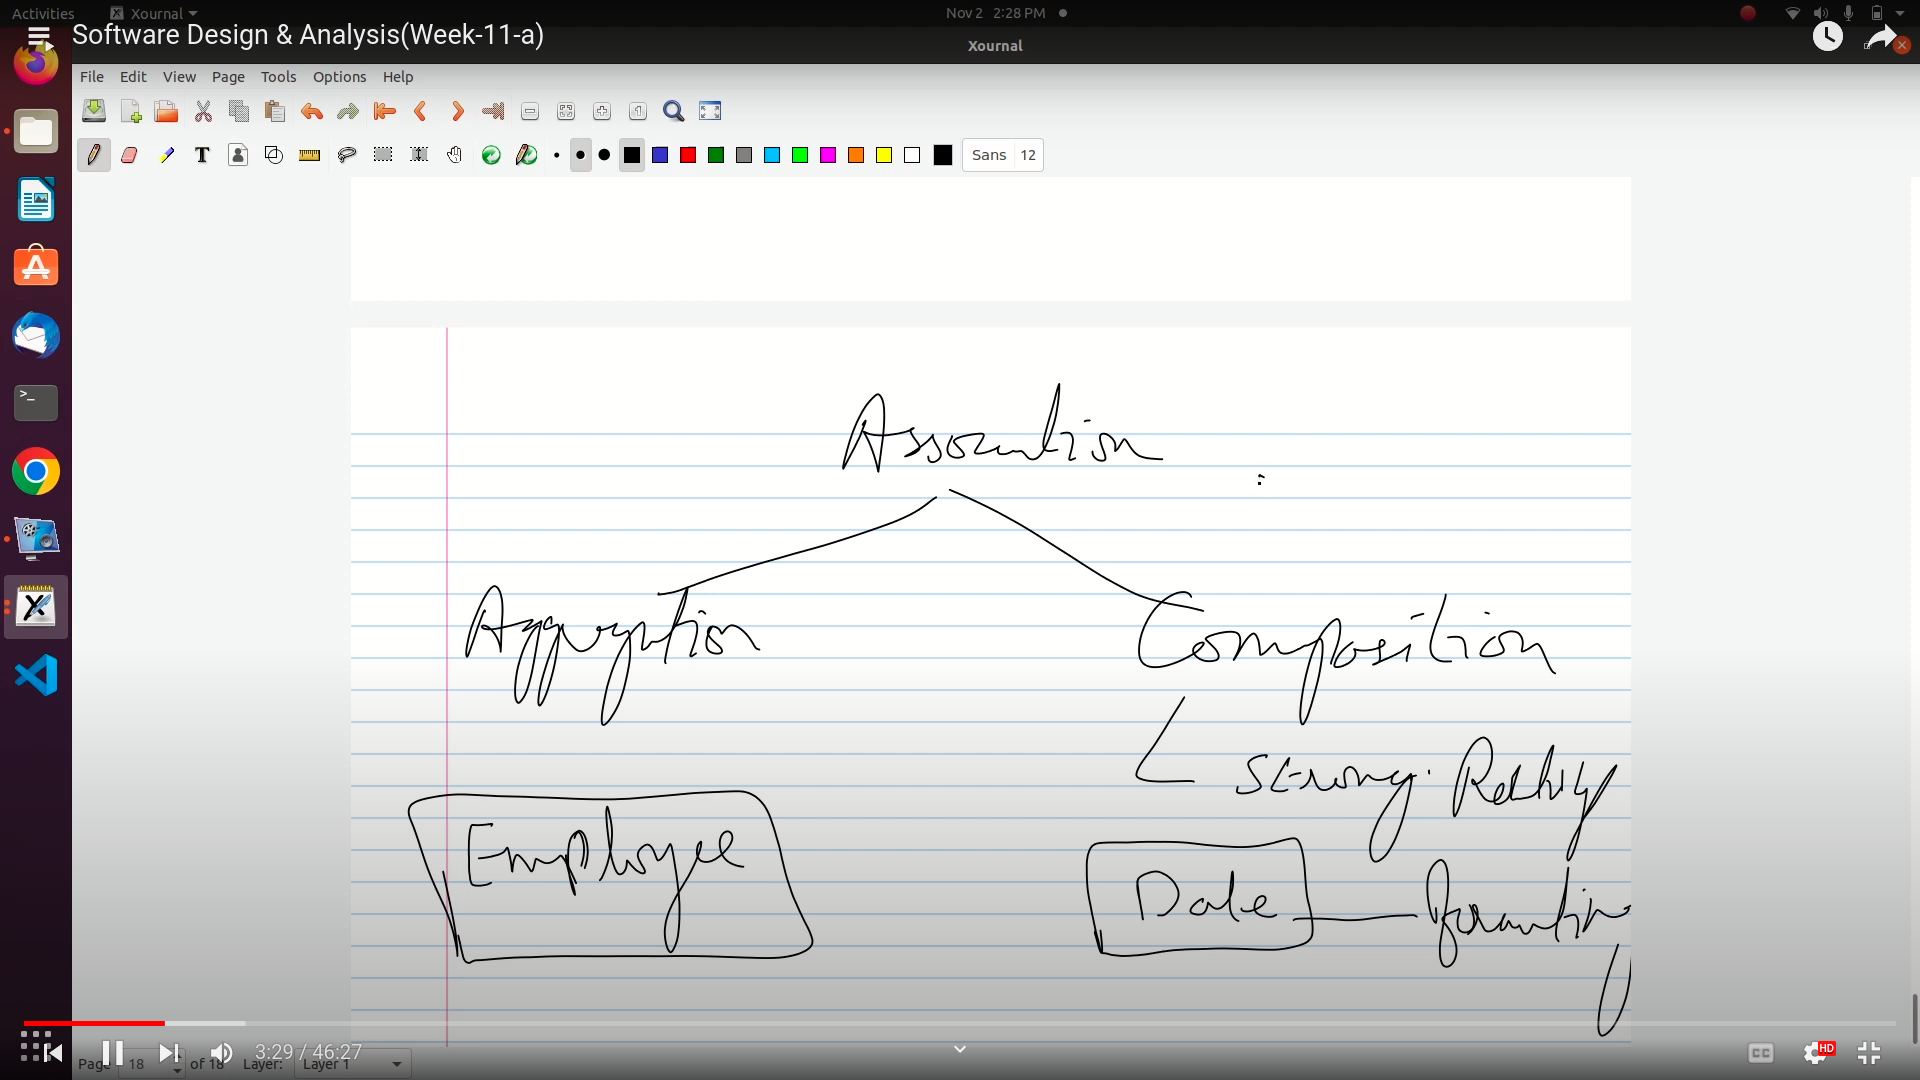 Activities Xournal Nov 2 2:28 PM
Software Design & Analysis(Week-11-a)
Xournal
File Edit View Page Tools Options Help
T Sans 12
Association
Aggregation Composition
Strong
Employee
Date
3:29 / 46:27 CC HD
Page 18 of 18 Layer: Layer 1